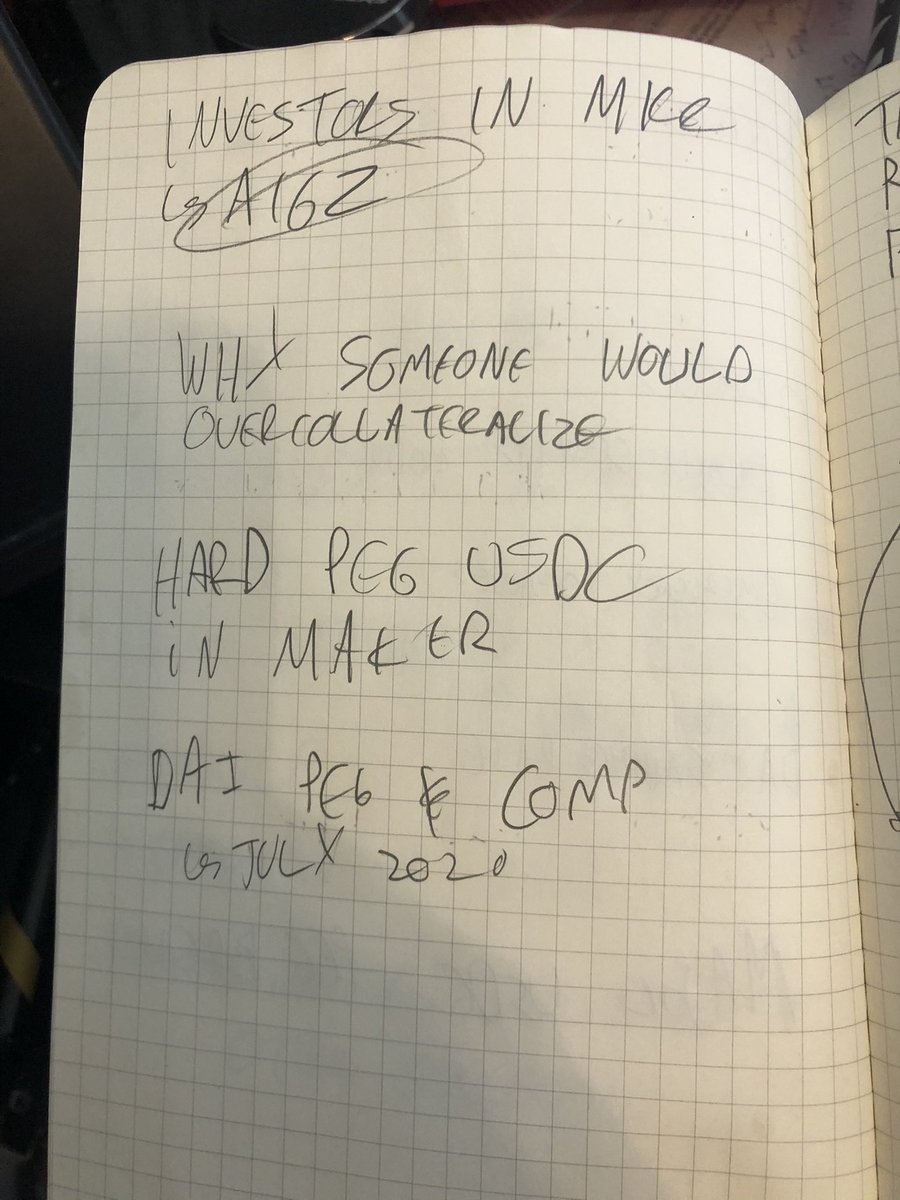 INVESTORS IN MKR
↳ A16Z
WHY SOMEONE WOULD
OVERCOLLATERALIZE
HARD PEG USDC
iN MAKER
DAI PEG & COMP
↳ JULY 2020